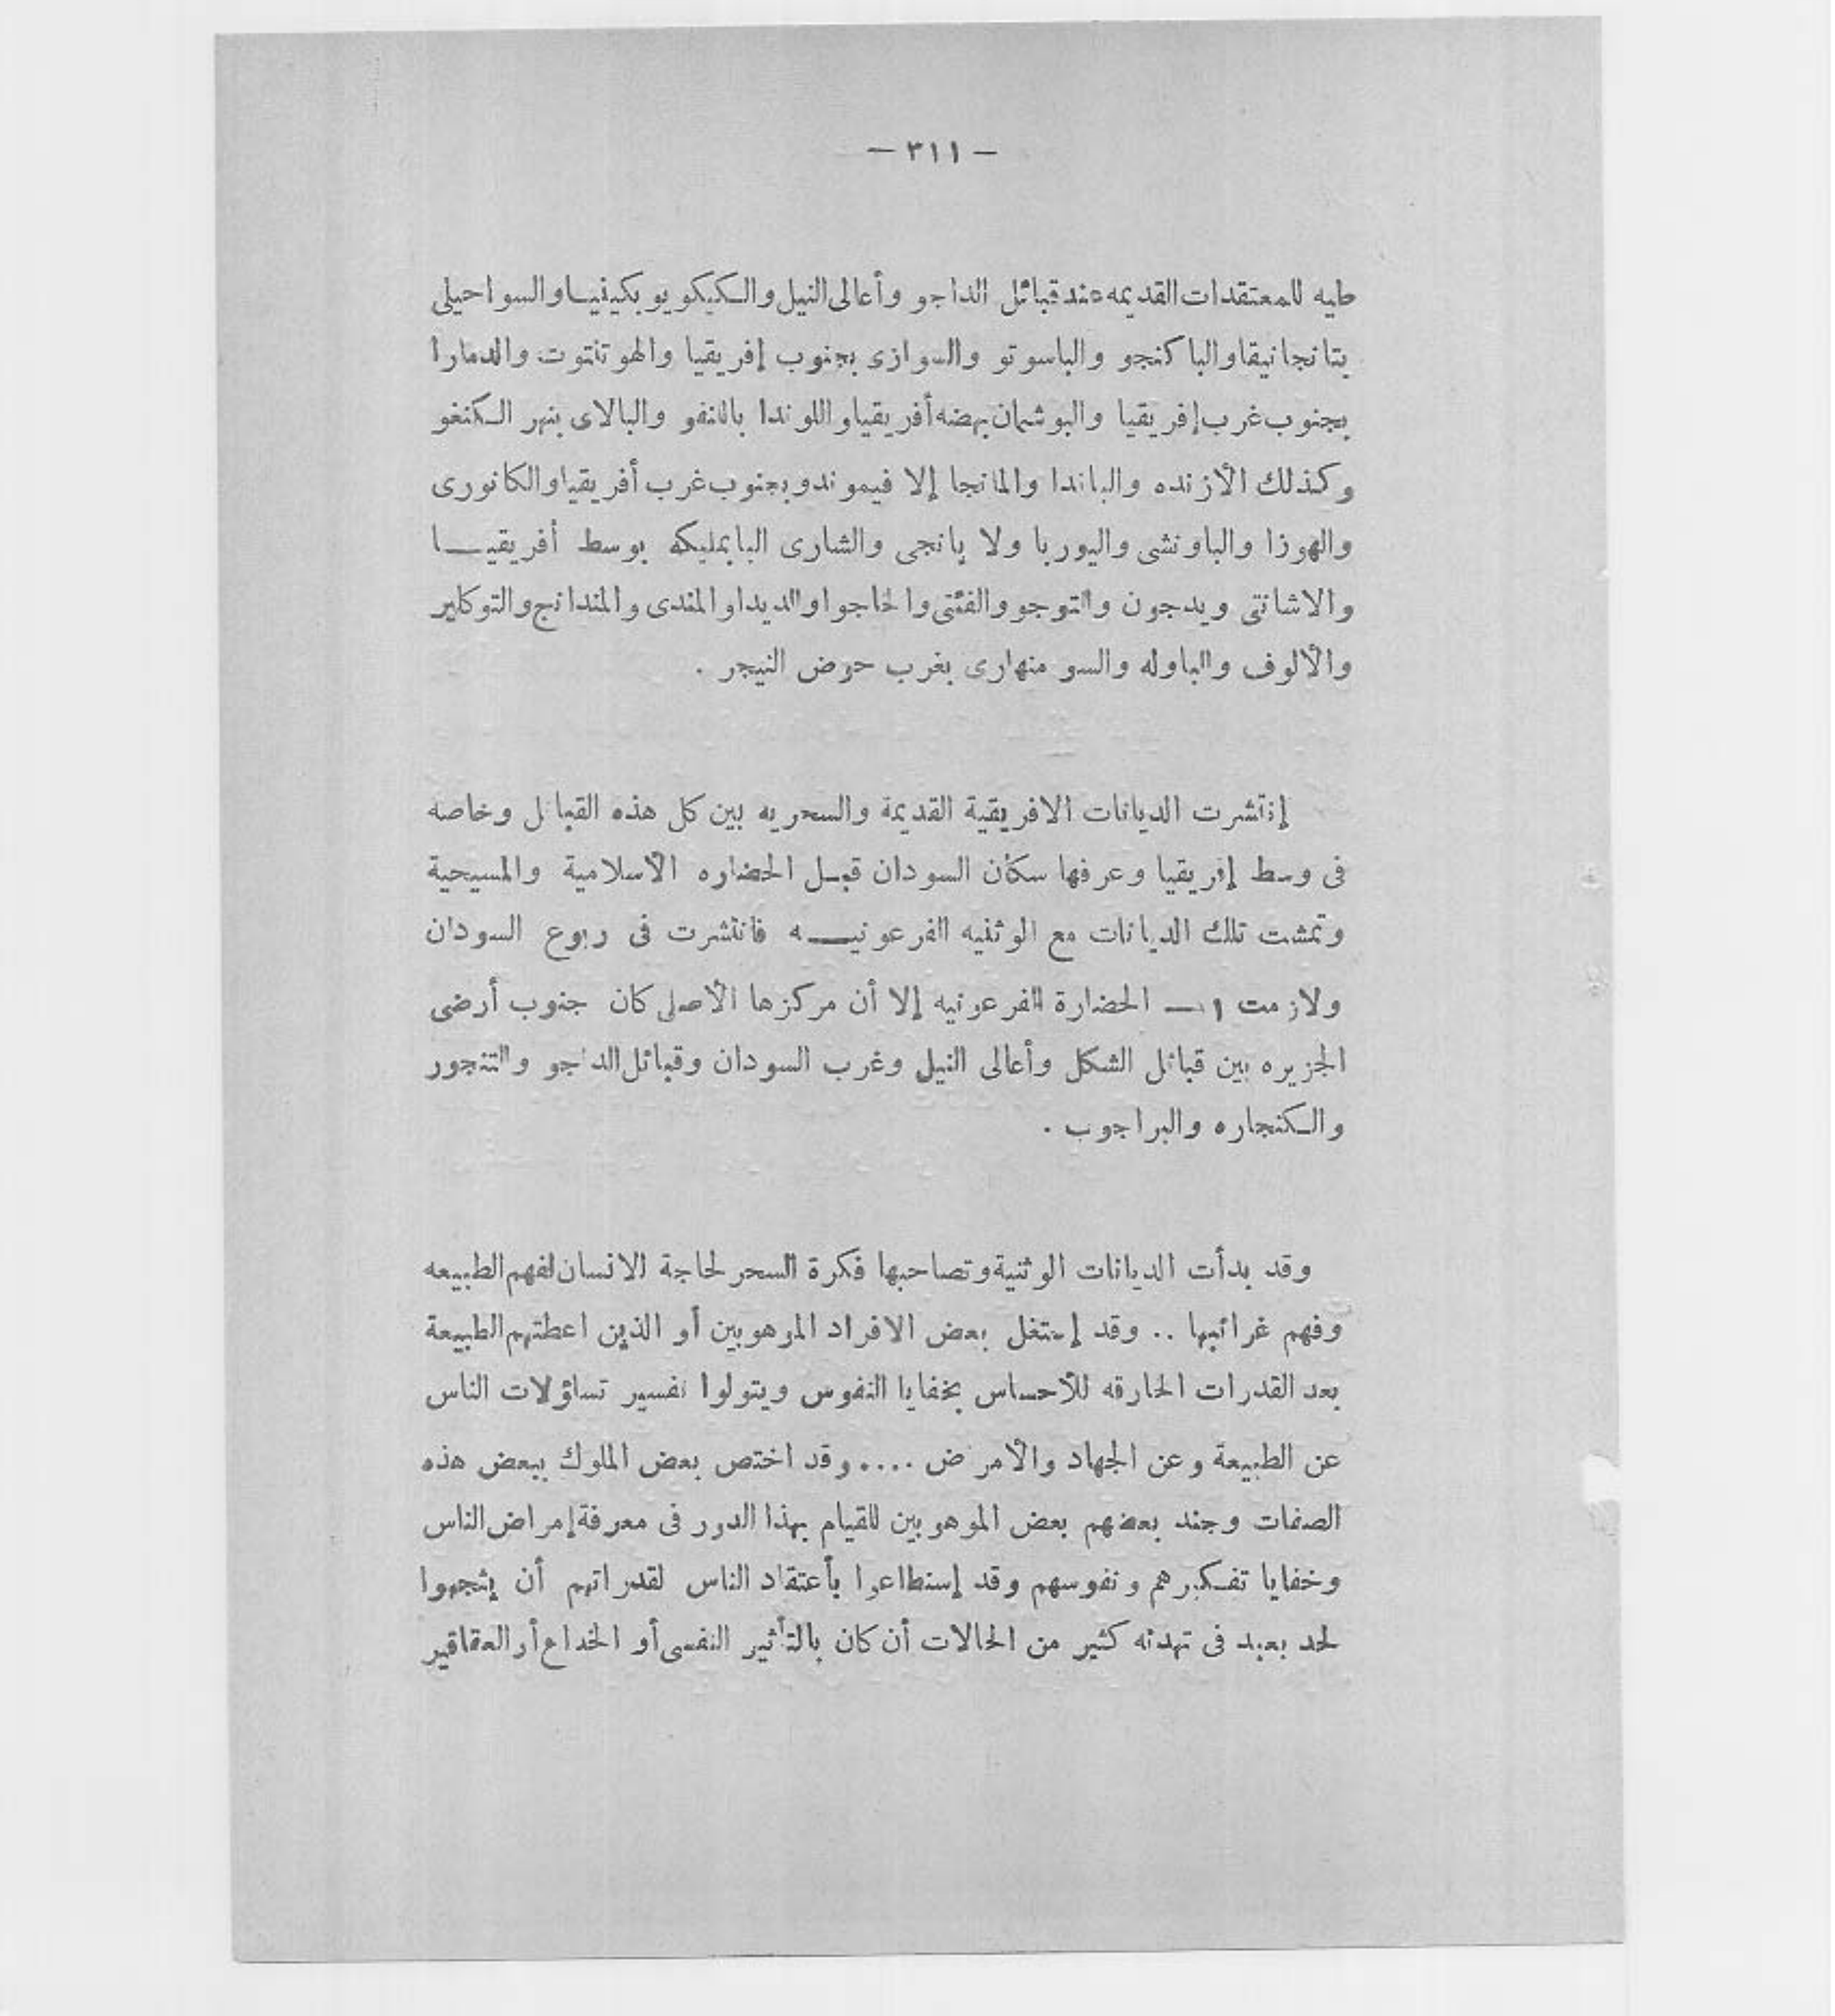 — ٣١١ —
طيه للمعتقدات القديمه عند قبائل الداجو وأعالى النيل والكيكويو بكينيا والسواحيلى
بتانجانيقا والباكنجو والباسوتو والسوازى بجنوب إفريقيا والهوتنتوت والدمارا
بجنوب غرب إفريقيا والبوشمان بهضبه أفريقيا واللوندا بالنفو والبالاى بنهر الكنغو
وكذلك الأزنده والباندا والمانجا إلا فيموندو بجنوب غرب أفريقيا والكانورى
والهوزا والباونشى واليوربا ولا يانجى والشارى البابمليكه بوسط أفريقيا
والاشانتى ويدجون والتوجو والفئتى والخاجوا والديدا والمندى والمندانج والتوكلير
والألوف والباوله والسو منهارى بغرب حوض النيجر .
إنتشرت الديانات الافريقية القديمة والسحريه بين كل هذه القبائل وخاصه
فى وسط إفريقيا وعرفها سكان السودان قبل الحضاره الأسلامية والمسيحية
وتمشت تلك الديانات مع الوثنيه الفرعونيه فانتشرت فى ربوع السودان
ولازمت الحضارة الفرعونيه إلا أن مركزها الأصلى كان جنوب أرضى
الجزيره بين قبائل الشكل وأعالى النيل وغرب السودان وقبائل الداجو والتنجور
والكنجاره والبراجوب .
وقد بدأت الديانات الوثنية وتصاحبها فكرة السحر لحاجة الانسان لفهم الطبيعه
وفهم غرائبها .. وقد إستغل بعض الافراد الموهوبين أو الذين اعطتهم الطبيعة
بعد القدرات الخارقه للأحساس بخفايا النفوس ويتولوا تفسير تساؤلات الناس
عن الطبيعة وعن الجهاد والأمراض .... وقد اختص بعض الملوك ببعض هذه
الصفات وجند بعضهم بعض الموهوبين للقيام بهذا الدور فى معرفة إمراض الناس
وخفايا تفكيرهم ونفوسهم وقد إستطاعوا بأعتقاد الناس لقدراتهم أن يثجهوا
لحد بعيد فى تهدئه كثير من الحالات أن كان بالتأثير النفسى أو الخداع أو العقاقير